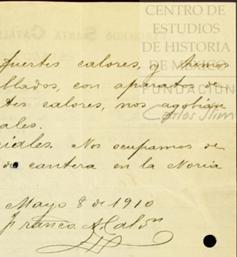 CENTRO DE
ESTUDIOS
DE HISTORIA
DE M
FUNDACIÓN
Carlos Slim
fuertes calores, y hemos
blados, con aparatos de
tes calores, nos agobian
ales.
riales. Nos ocupamos de
do cantera en la Noria
Mayo 8 de 1910
Franco. A. Cal